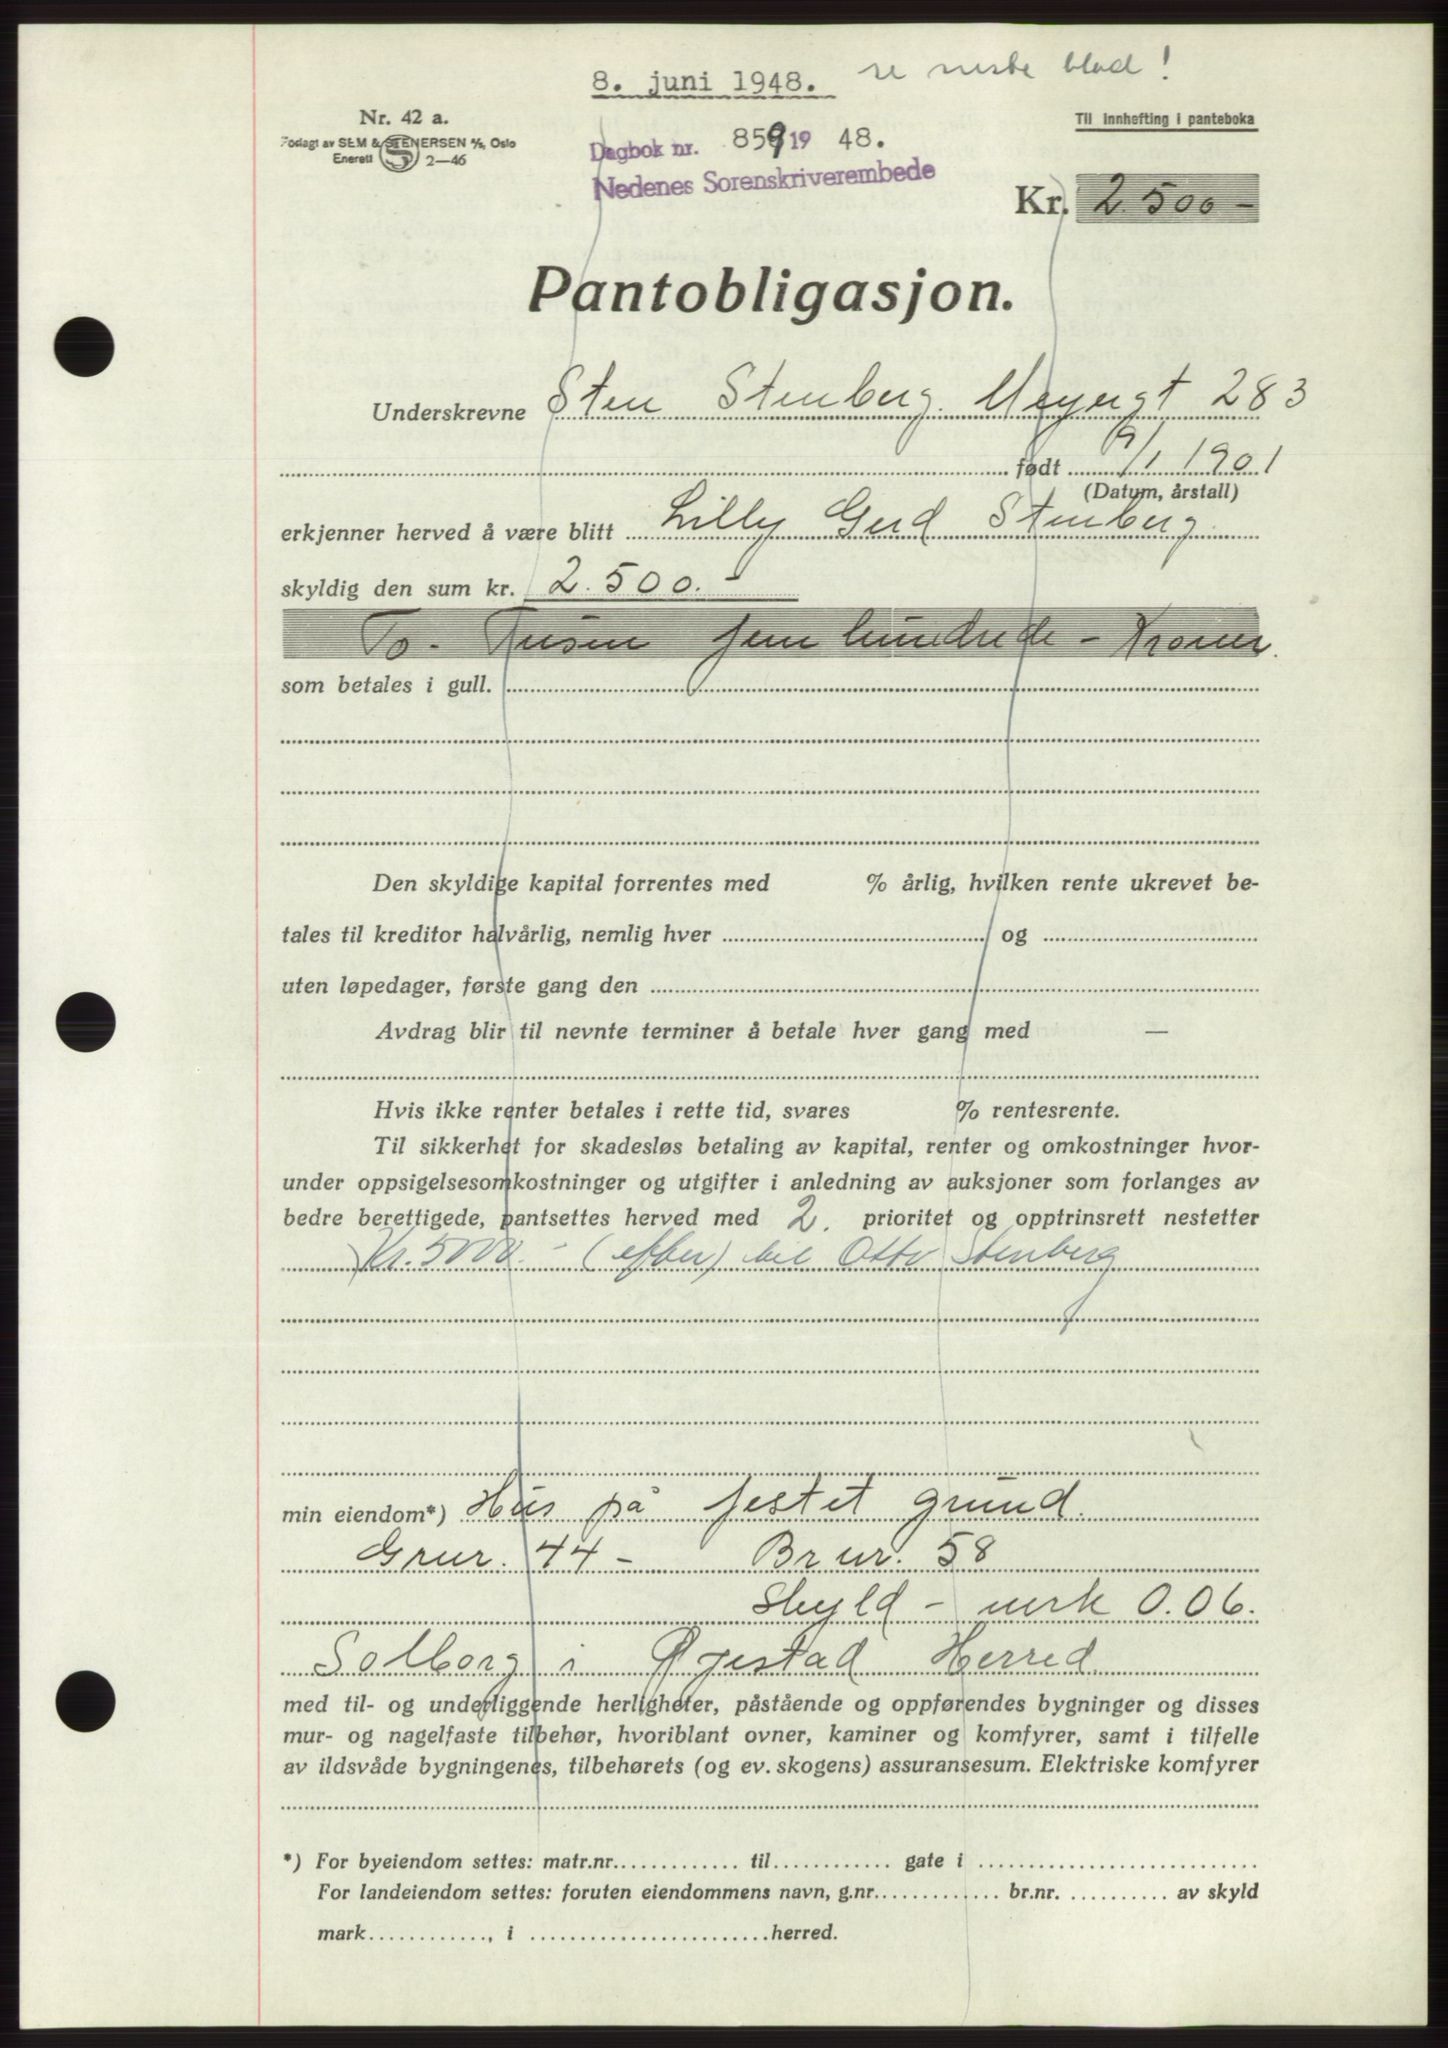 8. juni 1948. se neste blad!
Nr. 42 a.
Forlagt av SEM & STENERSEN A/S, Oslo
Enerett 2—46
Til innhefting i panteboka
Dagbok nr. 859 19 48.
Nedenes Sorenskriverembede
Kr. 2.500 –
Pantobligasjon.
Underskrevne Sten Stenberg. Meyergt 283
født 9/1 1901
(Datum, årstall)
erkjenner herved å være blitt Lilly Gerd Stenberg.
skyldig den sum kr. 2.500.–
To- Tusen fem hundrede – Kroner.
som betales i gull.
Den skyldige kapital forrentes med % årlig, hvilken rente ukrevet be-
tales til kreditor halvårlig, nemlig hver og
uten løpedager, første gang den
Avdrag blir til nevnte terminer å betale hver gang med —
Hvis ikke renter betales i rette tid, svares % rentesrente.
Til sikkerhet for skadesløs betaling av kapital, renter og omkostninger hvor-
under oppsigelsesomkostninger og utgifter i anledning av auksjoner som forlanges av
bedre berettigede, pantsettes herved med 2. prioritet og opptrinsrett nestetter
Kr. 5000.– (efter) til Otto Stenberg
min eiendom*) Hus på festet grund.
Grnr. 44 – Brnr. 58
Skyld – mrk 0.06.
Solborg i Øjestad Herred
med til- og underliggende herligheter, påstående og oppførendes bygninger og disses
mur- og nagelfaste tilbehør, hvoriblant ovner, kaminer og komfyrer, samt i tilfelle
av ildsvåde bygningenes, tilbehørets (og ev. skogens) assuransesum. Elektriske komfyrer
*) For byeiendom settes: matr.nr. til gate i
For landeiendom settes: foruten eiendommens navn, g.nr. br.nr. av skyld
mark , i herred.